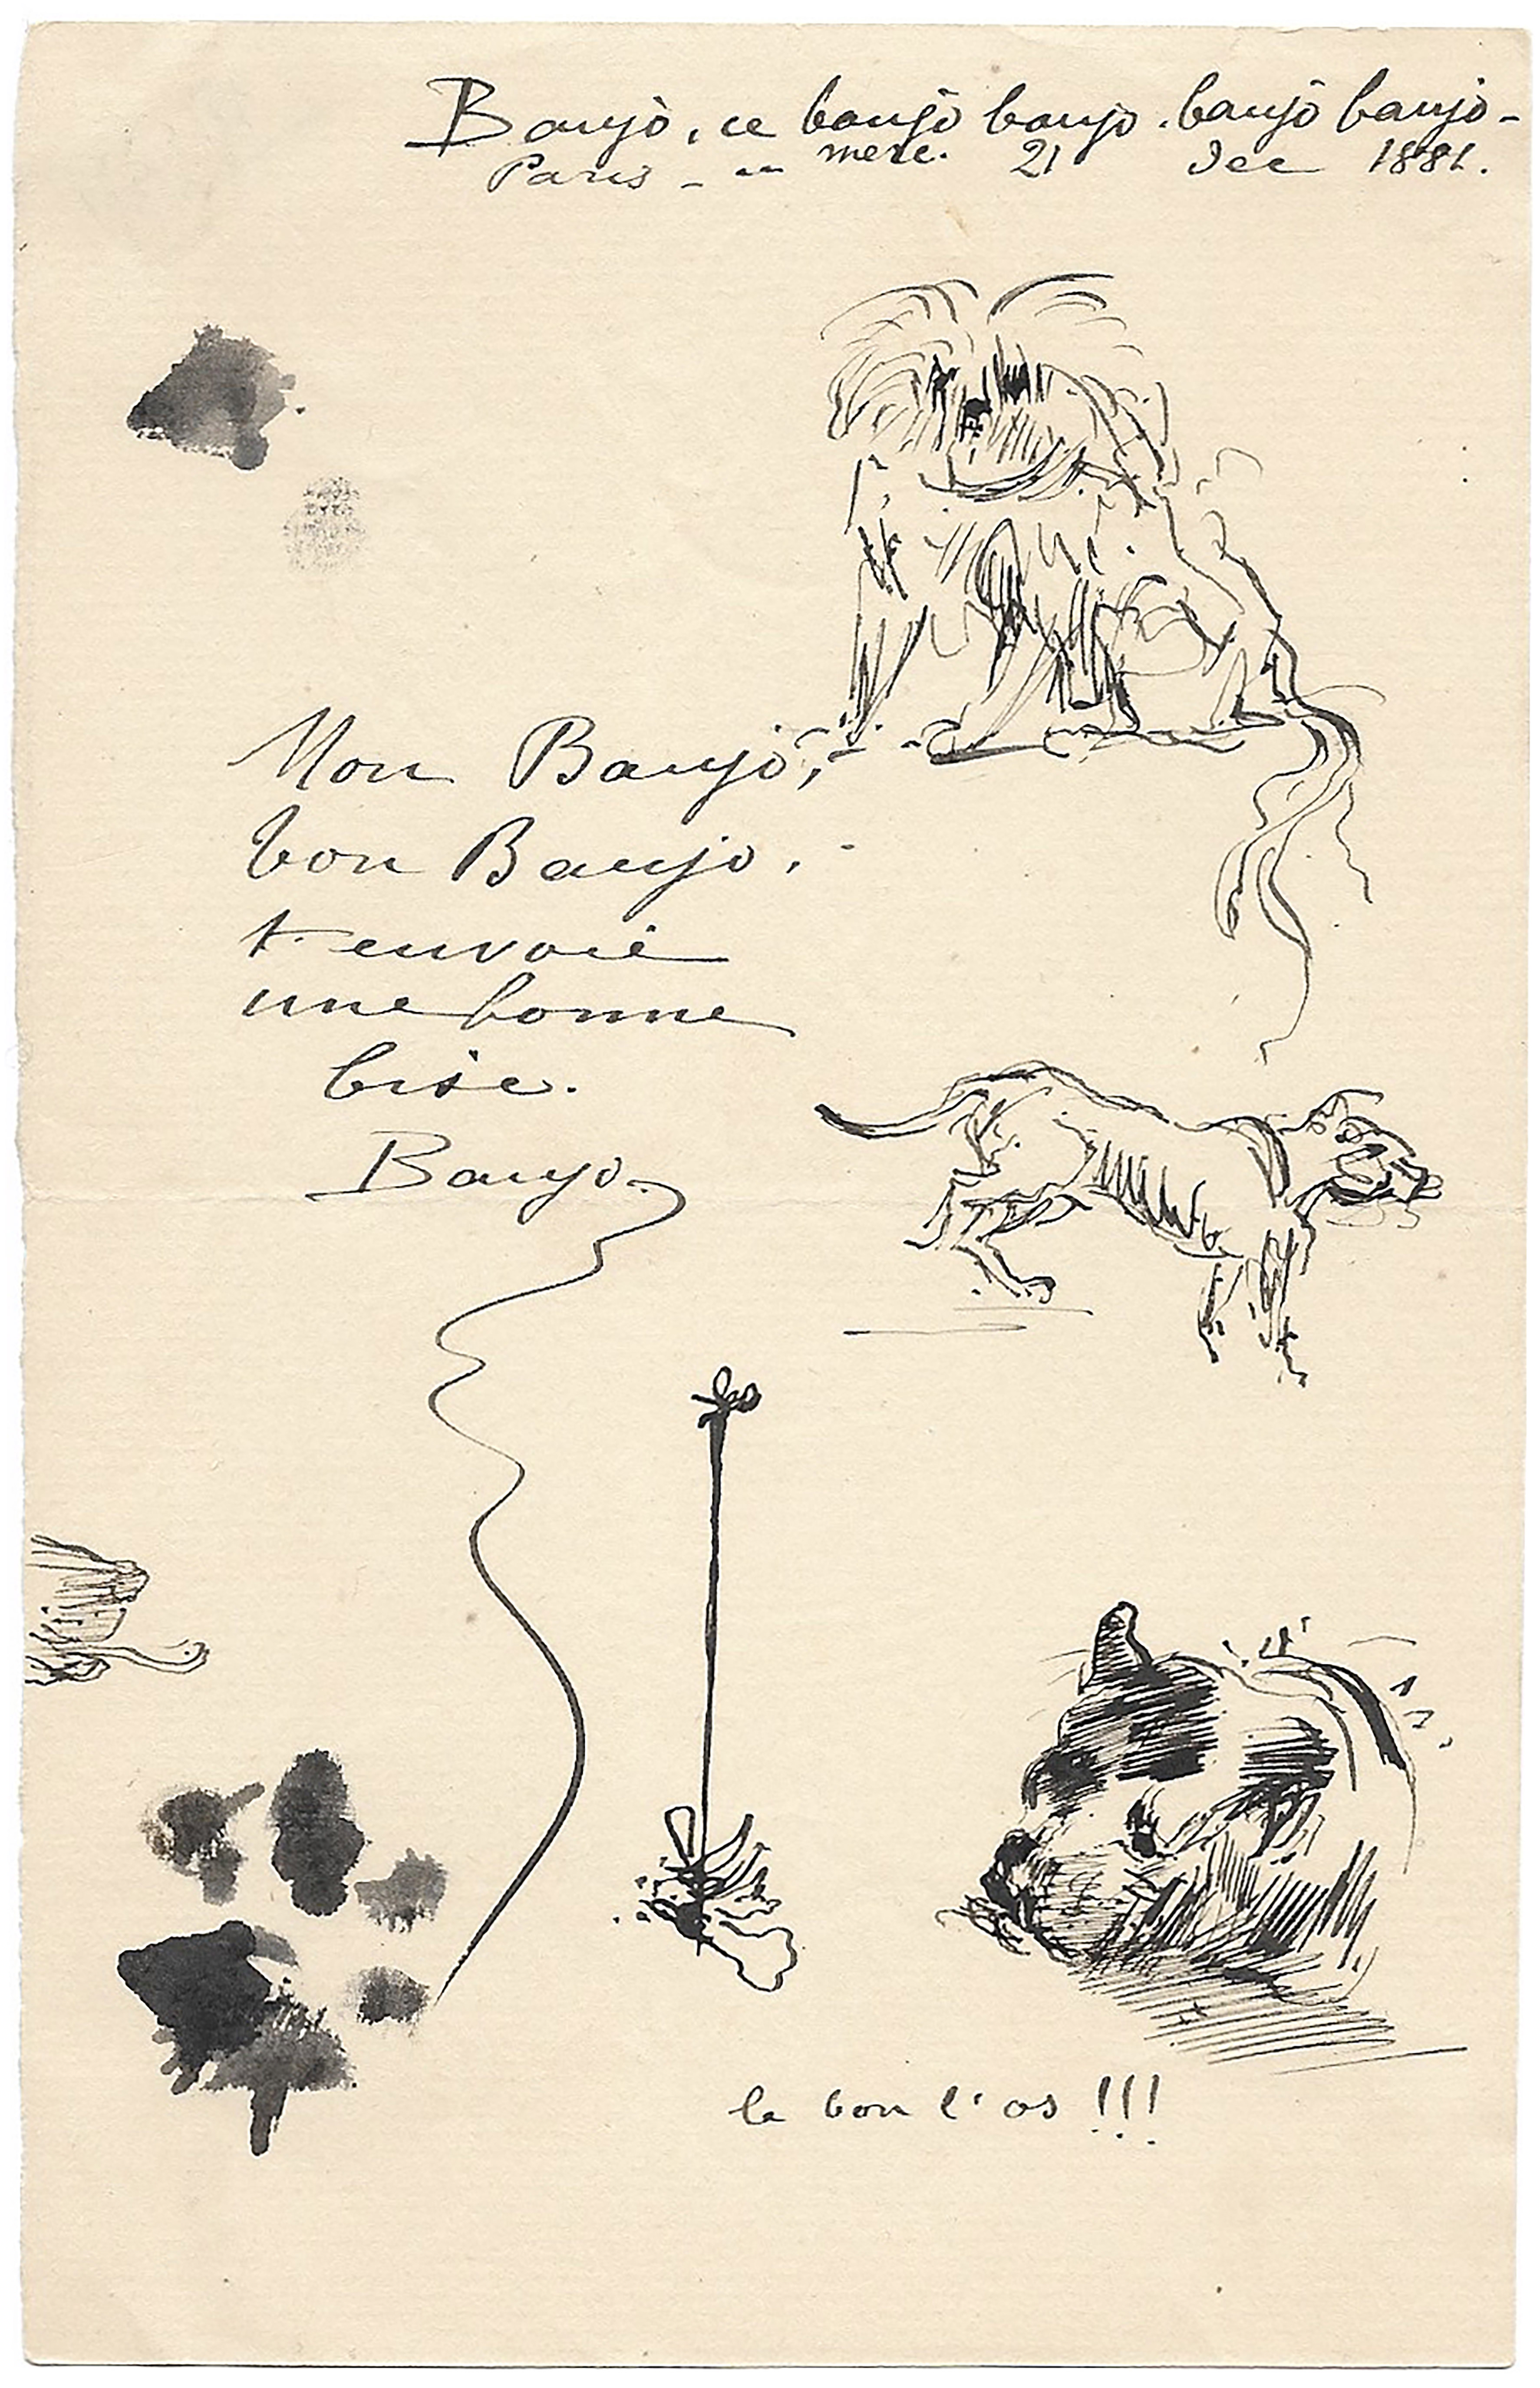 Banjo, ce banjo banjo. banjo banjo -
Paris - merc. 21 dec 1881.
Mon Banjo,
bon Banjo.
t'envoie
une bonne
bise.
Banjo
le bon l'os !!!